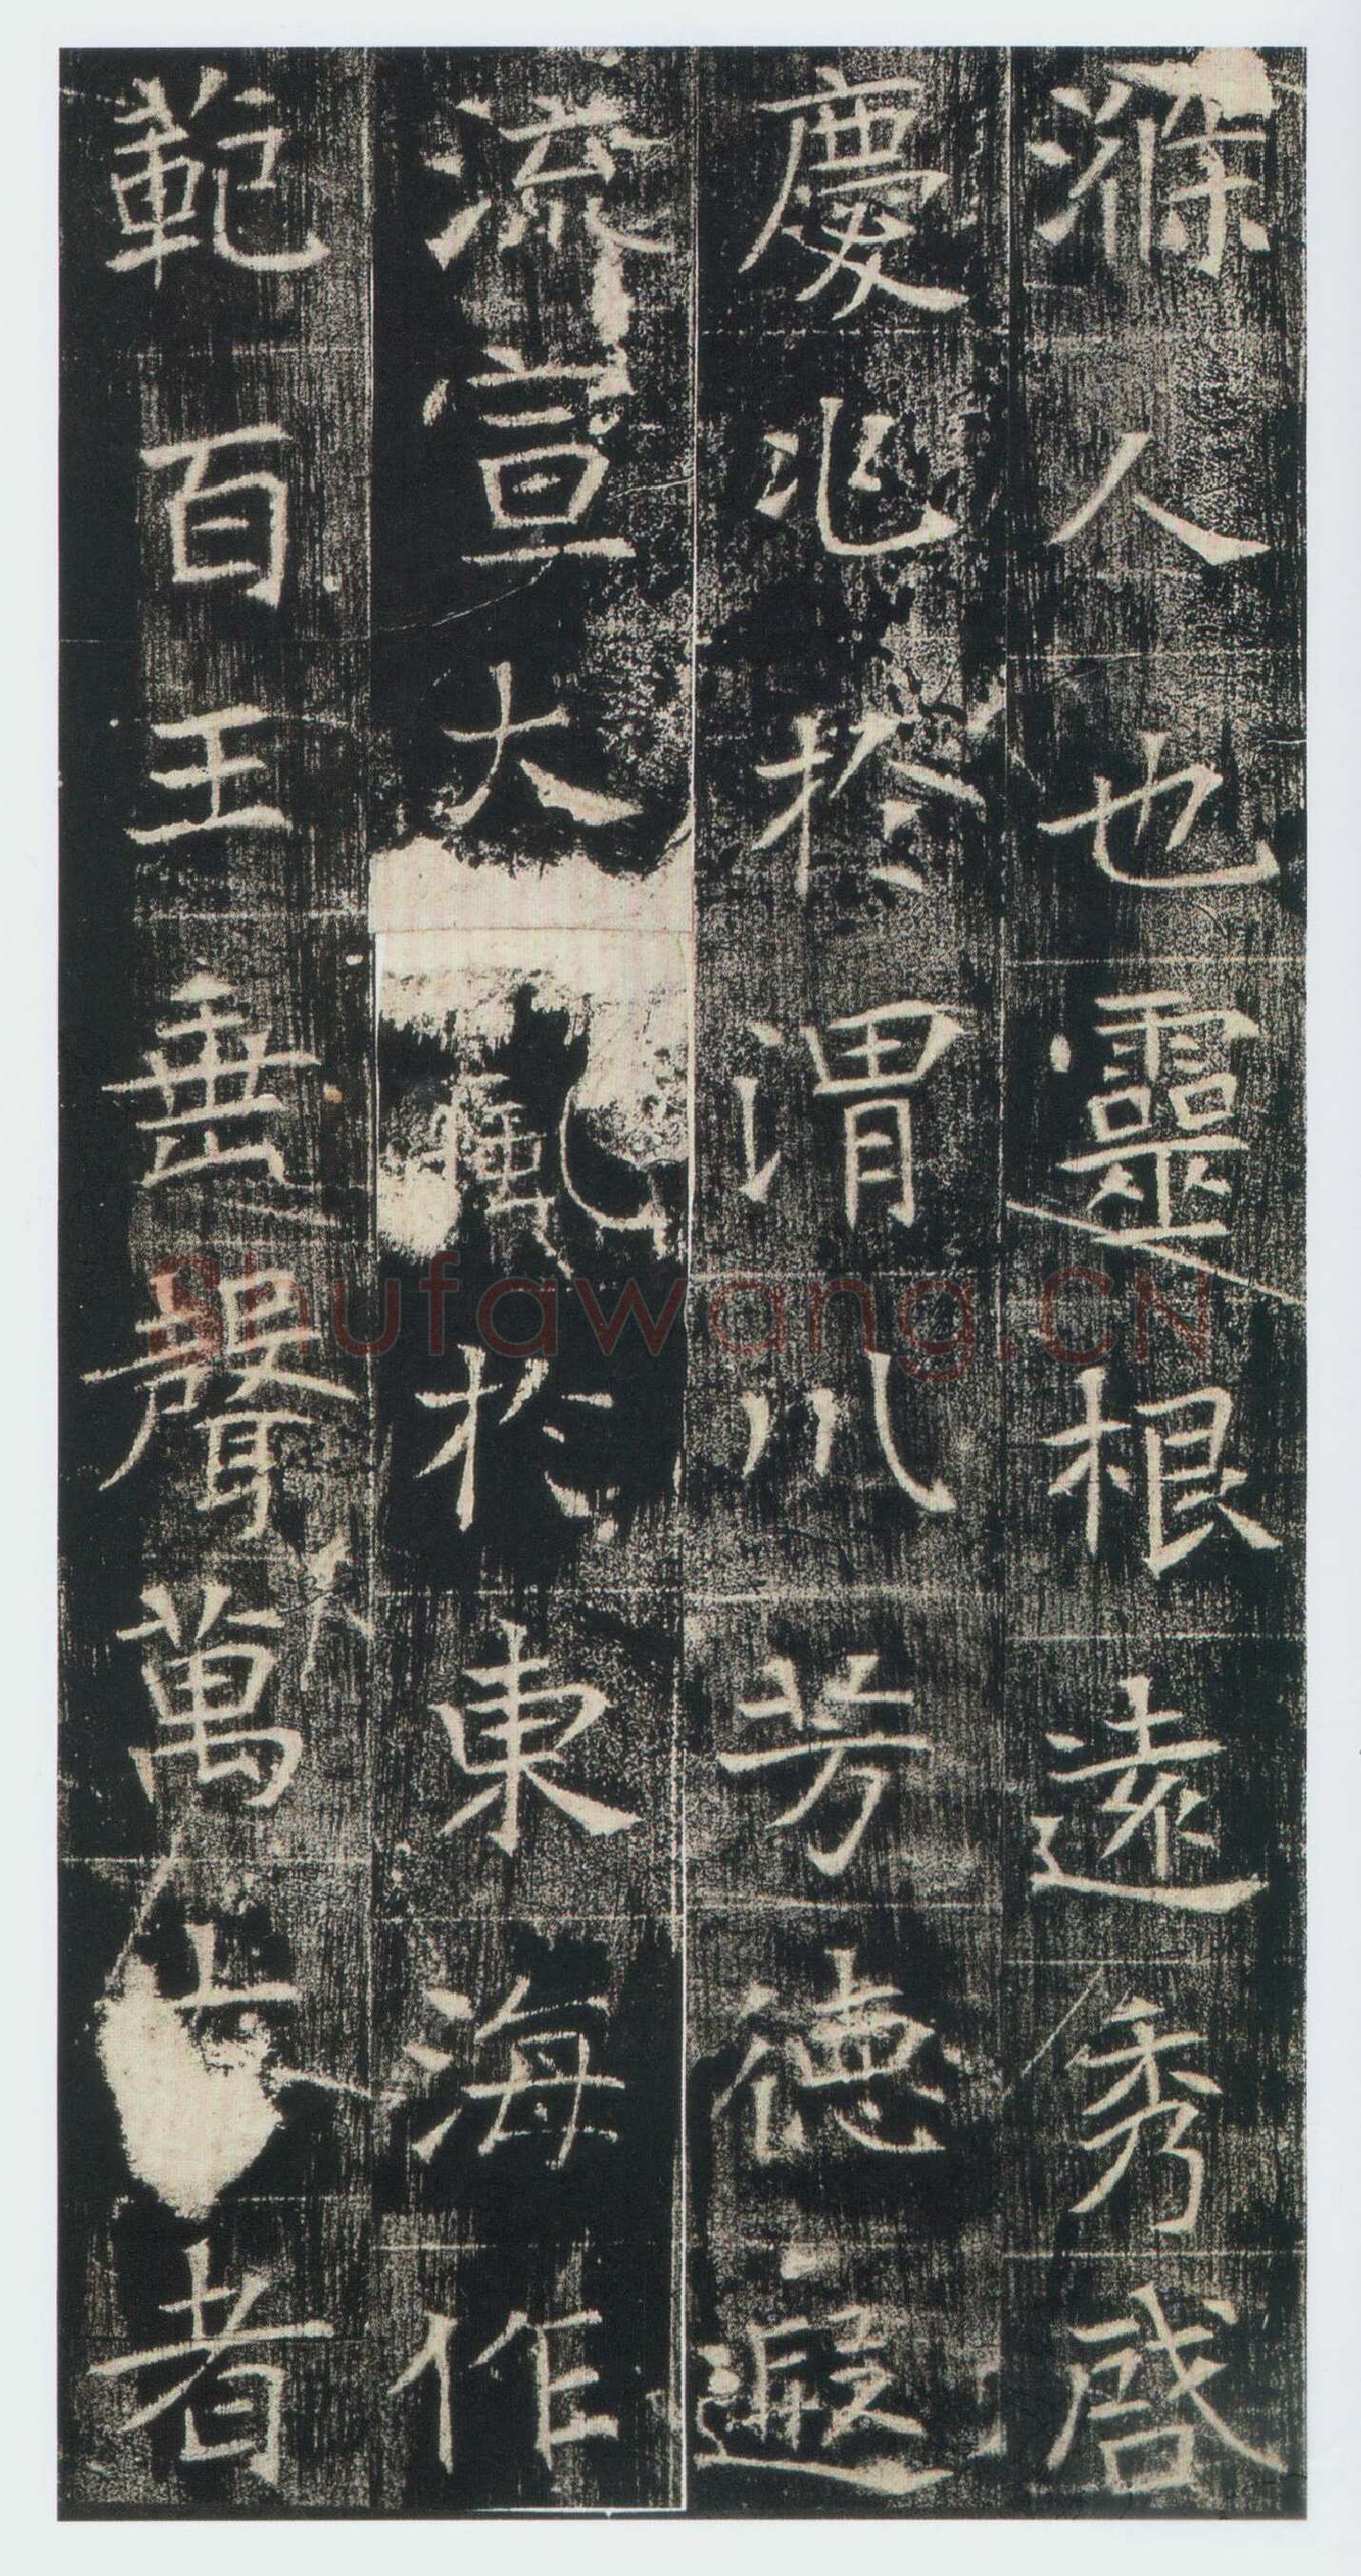 滌人也靈根遠秀啓
慶兆於渭川芳德遐
流宣大風於東海作
範百王垂聲萬古者
Shufawang.CN